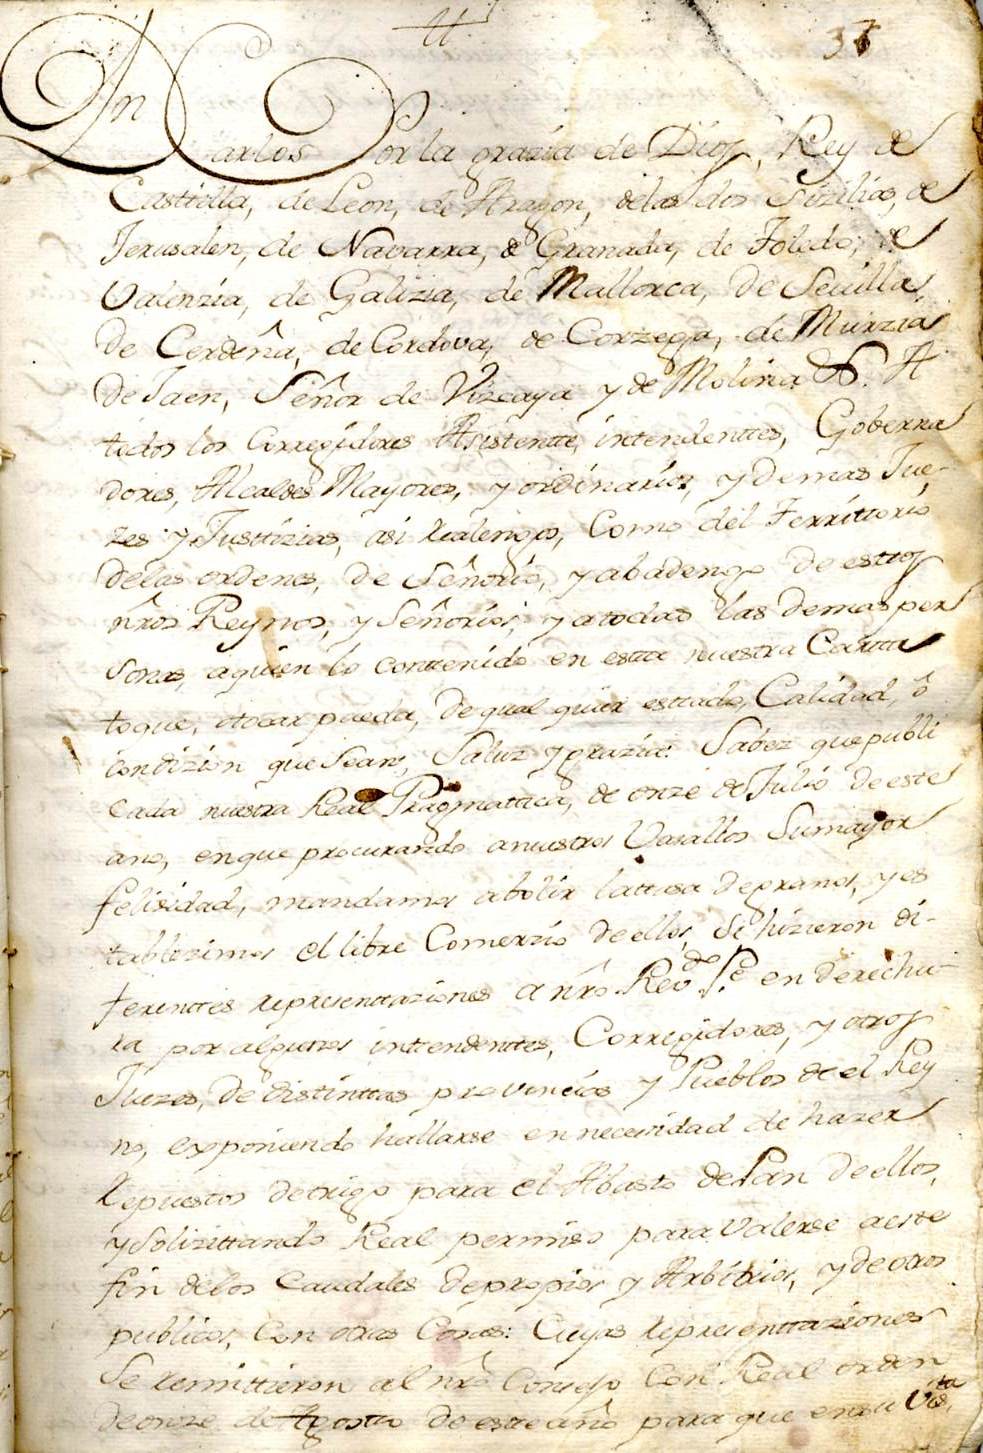 37
Dn Carlos Por la grazia de Dios, Rey de
Casttilla, de Leon, de Aragon, delas dos Sizilias, de
Jerusalen, de Navarra, de Granada, de Toledo, de
Valenzia, de Galizia, de Mallorca, de Sevilla,
de Cerdeña, de Cordova, de Corzega, de Murzia
de Jaen, Señor de Vizcaya y de Molina &. A
todos los Corregidores Asistentte, intendenttes, Goberna
dores, Alcaldes Mayores, y ordinarios, y demas Jue-
zes y Justtizias, asi Realengos, Como del Territtorio
delas ordenes, de Señorio, y abadengo de esttos
nr̃os Reynos, y Señorios, y a todas las demas per
sonas, a quien lo conttenido en estta nuestra Cartta
toque, o tocar pueda, de qual quier esttado, Calidad, ô
condizion que Sean, Saluz y grazia: Sabez que publi
cada nuestra Real Pragmattica, de onze de Julio de este
año, en que procurando a nuestros Vasallos Su mayor
felisidad, mandamos abolir la ttasa de granos, y es
tablezimos el libre Comerzio de ellos, Se hizieron di-
ferenttes representtaziones a nr̃o Revdo Pe en derechu-
ra por algunos inttendenttes, Corregidores, y otros
Juezes, de disttinttas provincias y Pueblos de el Rey
no, exponiendo hallarse en necesidad de hazer
Repuestos de trigo para el Abasto de Pan de ellos,
y Solizittando Real permiso para Valerse a este
fin delos Caudales de propios y Arbitrios, y de otros
publicos, Con otras Cosas: Cuyas representtaziones
Se remittieron al nr̃o Consejo Con Real orden
de onze de Agosto de este año para que en su Vista,